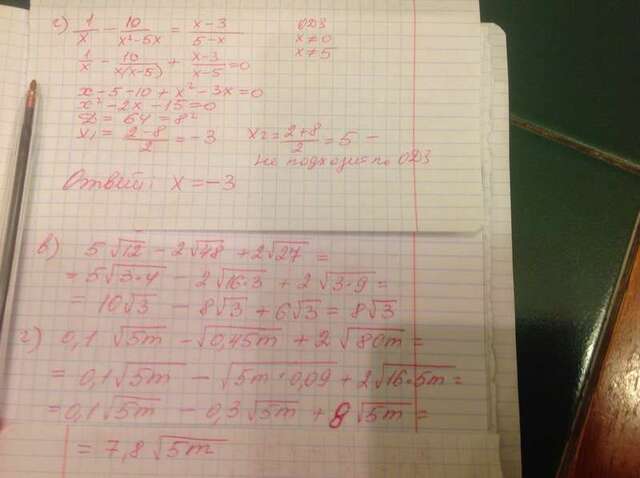 г) 1/x - 10/(x²-5x) = (x-3)/(5-x) ОДЗ
x≠0
1/x - 10/(x(x-5)) + (x-3)/(x-5) = 0 x≠5
x-5-10+x²-3x=0
x²-2x-15=0
D=64=8²
x₁= (2-8)/2 = -3 x₂= (2+8)/2 = 5 -
не подходит по ОДЗ
Ответ: x=-3
в) 5√12 - 2√48 + 2√27 =
= 5√3·4 - 2√16·3 + 2√3·9 =
= 10√3 - 8√3 + 6√3 = 8√3
г) 0,1 √5m - √0,45m + 2√80m =
= 0,1√5m - √5m·0,09 + 2√16·5m =
= 0,1√5m - 0,3√5m + 8√5m =
= 7,8√5m